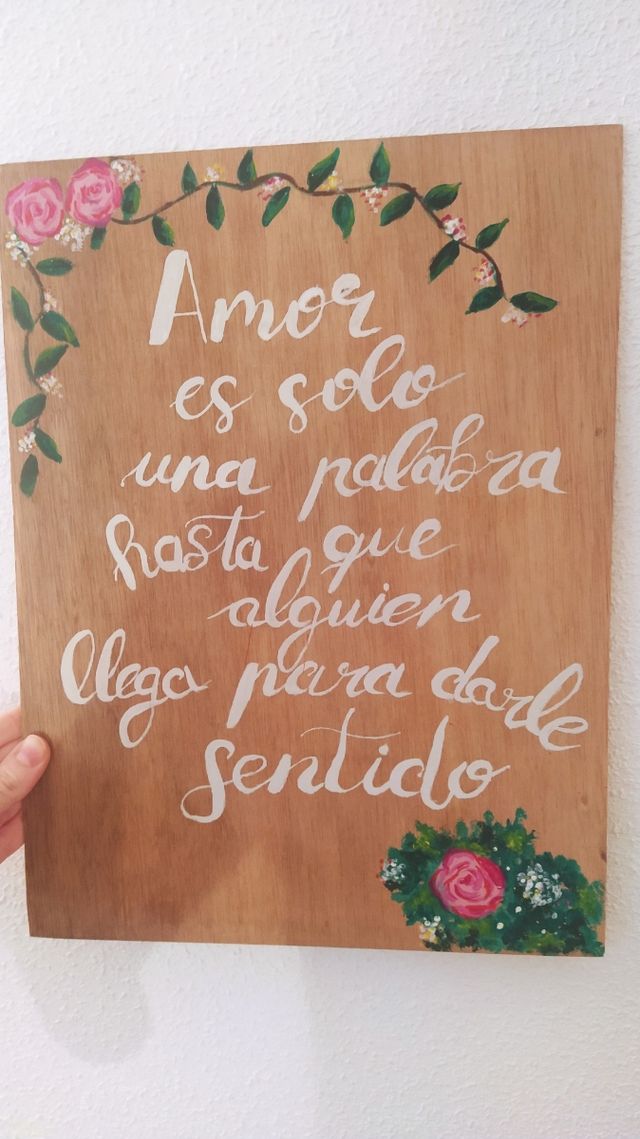 Amor
es solo
una palabra
hasta que
alguien
llega para darle
sentido